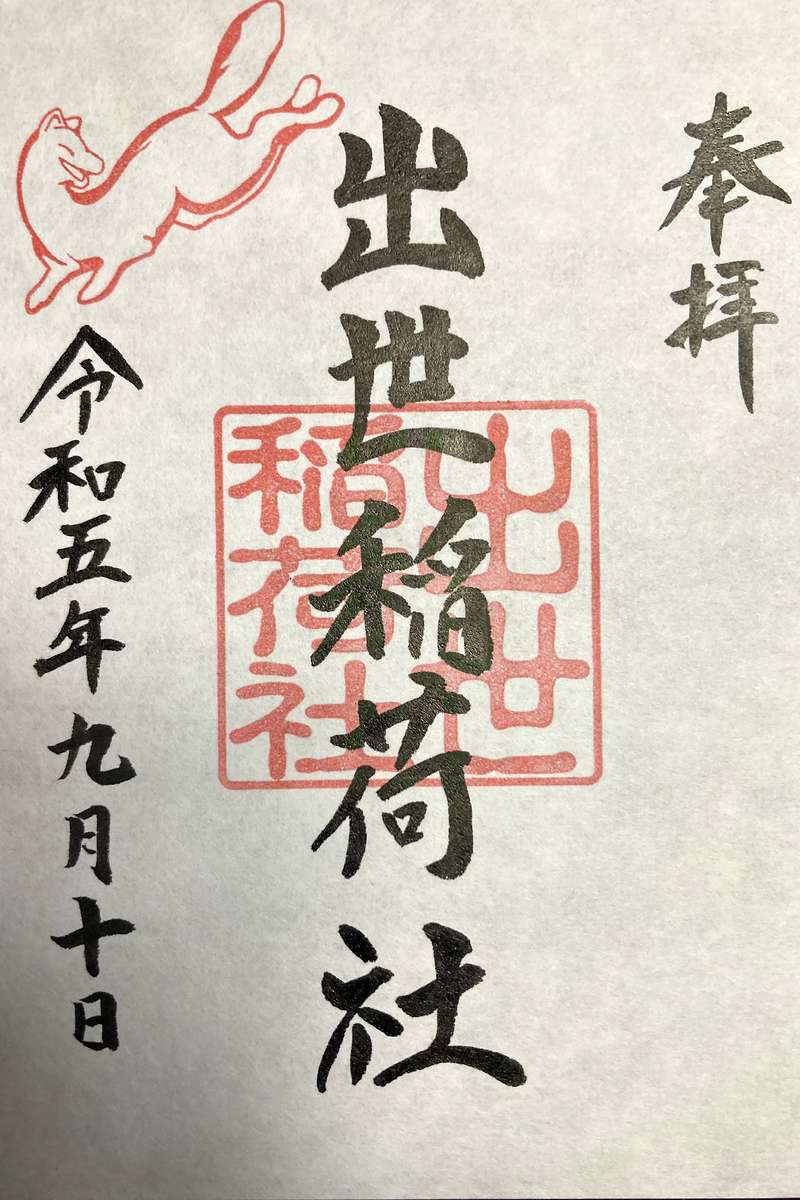 奉拝
出世稲荷社
出世
稲荷社
令和五年九月十日